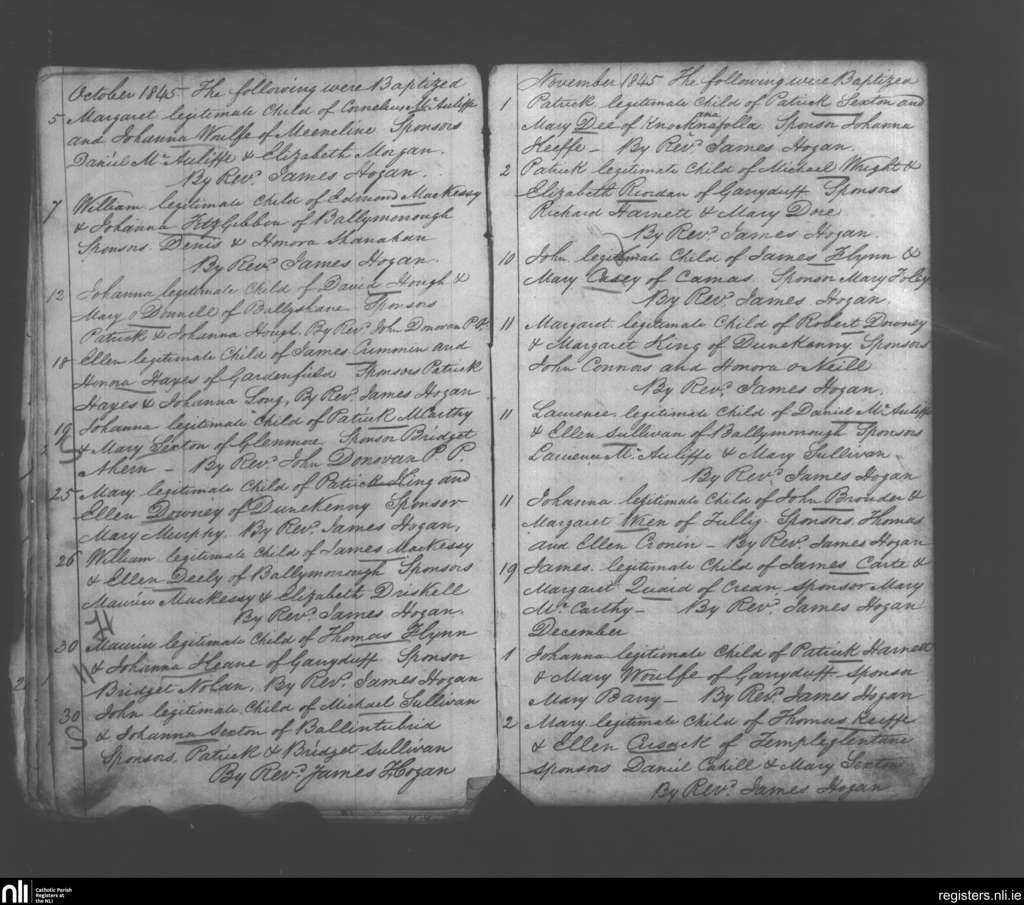 October 1845 The following were Baptized
5 Margaret legitimate Child of Cornelius McAuliffe
and Johanna Woulfe of Meeneline Sponsors
Daniel McAuliffe & Elizabeth Morgan.
By Revd. James Hogan.
7 William legitimate Child of Edmond MacKessy
& Johanna FitzGibbon of Ballymorrough
Sponsors Denis & Honora Shanahan
By Revd. James Hogan.
12 Johanna legitimate Child of David Hough &
Mary O Donnell of Ballyshane Sponsors
Patrick & Johanna Hough. By Revd. John Donovan P.P.
18 Ellen legitimate Child of James Cummin and
Honora Hayes of Gardenfield Sponsors Patrick
Hayes & Johanna Long, By Revd. James Hogan
19 Johanna legitimate Child of Patrick McCarthy
& Mary Sexton of Glenmore Sponsor Bridget
Ahern – By Revd. John Donovan P.P.
25 Mary legitimate Child of Patrick King and
Ellen Downey of DuneKenny Sponsor
Mary Murphy. By Revd. James Hogan.
26 William legitimate Child of James MacKessy
& Ellen Deely of Ballymorrough Sponsors
Maurice MacKessy & Elizabeth Driskell
By Revd. James Hogan.
30 Maurice legitimate Child of Thomas Flynn
& Johanna Heane of Garryduff Sponsor
Bridget Nolan, By Revd. James Hogan
30 John legitimate Child of Michael Sullivan
& Johanna Sexton of Ballintubrid
Sponsors, Patrick & Bridget Sullivan
By Revd. James Hogan
November 1845 The following were Baptized
1 Patrick legitimate Child of Patrick Sexton and
Mary Dee of Knocknanafolla Sponsor Johanna
Keeffe – By Revd. James Hogan.
2 Patrick legitimate Child of Michael Wright &
Elizabeth Riordan of Garryduff Sponsors
Richard Harnett & Mary Dore
By Revd. James Hogan.
10 John legitimate Child of James Flynn &
Mary Casey of Camas. Sponsor Mary Foley
By Revd. James Hogan.
11 Margaret legitimate Child of Robert Downey
& Margaret King of DuneKanny Sponsors
John Connors and Honora O Neill
By Revd. James Hogan.
11 Laurence legitimate Child of Daniel McAuliffe
& Ellen Sullivan of Ballymorrough Sponsors
Laurence McAuliffe & Mary Sullivan
By Revd. James Hogan
11 Johanna legitimate Child of John Brouder &
Margaret of Tullig. Sponsors, Thomas
and Ellen Cronin – By Revd. James Hogan
19 James legitimate Child of James Carte &
Margaret Quaid of Crean. Sponsor Mary
McCarthy – By Revd. James Hogan
December
1 Johanna legitimate Child of Patrick Harnett
& Mary Woulfe of Garryduff Sponsor
Mary Barry – By Revd. James Hogan
2 Mary legitimate Child of Thomas Keeffe
& Ellen Cusack of Templeglentane
Sponsors Daniel Cahill & Mary Sexton
By Revd. James Hogan
nli Catholic Parish
Registers at
the NLI
registers.nli.ie